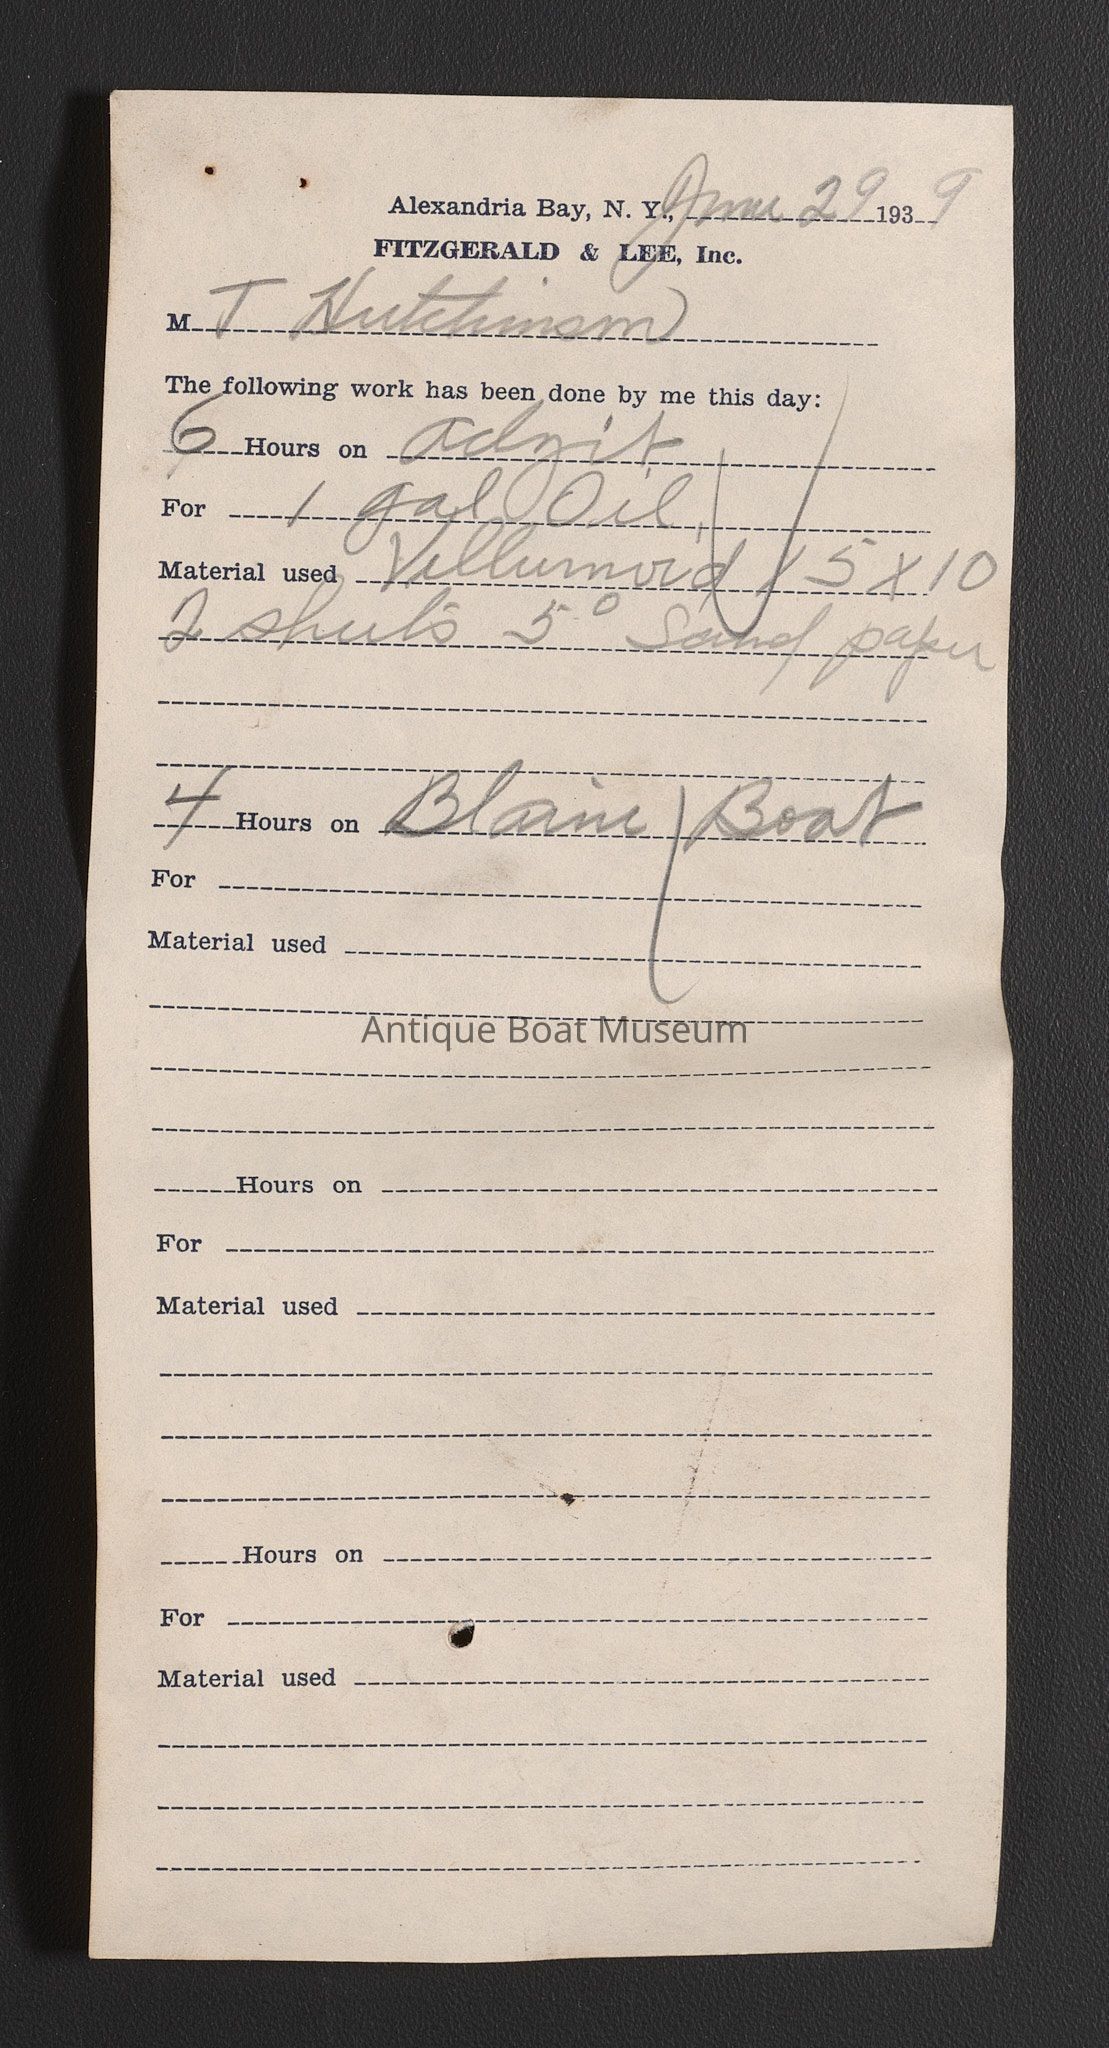 Alexandria Bay, N. Y., June 29 1939
FITZGERALD & LEE, Inc.
M T Hutchinson
The following work has been done by me this day:
6 Hours on Adzit
For 1 gal Oil
Material used Vellumoid 15 x 10
2 sheets 5° Sand paper
4 Hours on Blaine Boat
For
Material used
Antique Boat Museum
Hours on
For
Material used
Hours on
For
Material used